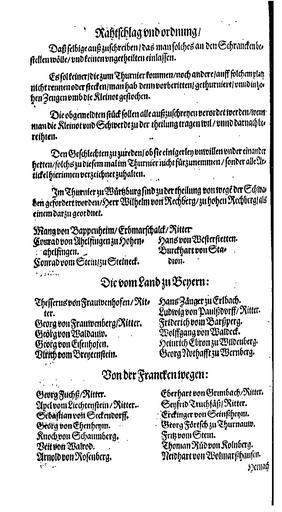 Rahtschlag vnd ordnung/
Daß selbige auß zuschreiben/ das man solches an den Schrancken be-
stellen wölle/ vnd keinen vngethurnierten einlassen.
Es sol keiner/ die zum Thurnier kommen/ noch andere/ auff solchem platz
nicht rennen oder stecken/ man hab denn vor beritten/ gethurniert/ vnnd in
hen Zeugen vmb die Kleinot gestochen.
Die obgemeldten stück sollen alle auß zuschreyen verordet werden/ wenn
man die Kleinot vnd Schwerdt zu der theilung tragen wil/ vnnd darnach be-
reihten.
Den Geschlechten zu zureden/ ob sie einigerley vnwillen vnder einander
hetten/ solchs zu diesem mal im Thurnier nicht fürzunemmen/ sonder alle Ar-
tickel hierinnen verzeichnet zuhalten.
Im Thurnier zu Würtzburg sind zu der theilung von wegē der Schwa-
ben gefordert worden/ Herr Wilhelm von Rechberg/ zu hohen Rechberg/ als
einem darzu geordnet.
Mang von Bappenheim/ Erbmarschalck/ Ritter
Conrad von Ahelfingen zu Hohen-
ahelfingen.
Conrad vom Stein/ zu Steineck.
Hans von Westerstetten.
Burckhart von Sta-
dion.
Die vom Land zu Beyern:
Thesserus von Frauwenhofen/ Rit-
ter.
Georg von Frauwenberg/ Ritter.
Georg von Waldauw.
Georg von Eisenhofen.
Vlrich von Breytenstein.
Hans Zänger zu Erlbach.
Ludwig von Paulßdorff/ Ritter.
Friderich vom Barsperg.
Wolffgang von Waldeck.
Heinrich Ebron zu Wildenberg.
Georg Nothafft zu Wernberg.
Von der Francken wegen:
Georg Fuchß/ Ritter.
Apel vom Liechtenstein/ Ritter.
Sebastian von Seckendorff.
Georg von Ehenheym.
Knoch von Schaumberg.
Veit von Walrod.
Arnold von Rosenberg.
Eberhart von Grumbach/ Ritter.
Seyfrid Truchsäß/ Ritter.
Erckinger von Seinßheym.
Georg Förtsch zu Thurnauw.
Fritz vom Stein.
Thoman Rüd von Kolnberg.
Neidhart von Wolmarßhausen.
Hernach